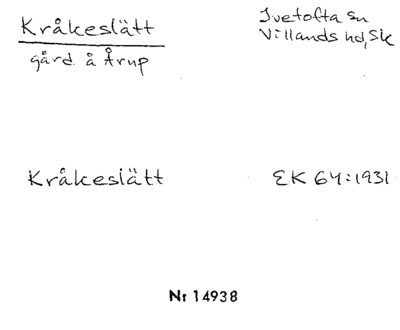 Kråkeslätt
gård å Årup
Ivetofta sn
Villands hd, Sk
Kråkeslätt
EK 64:1931
Nr 14938